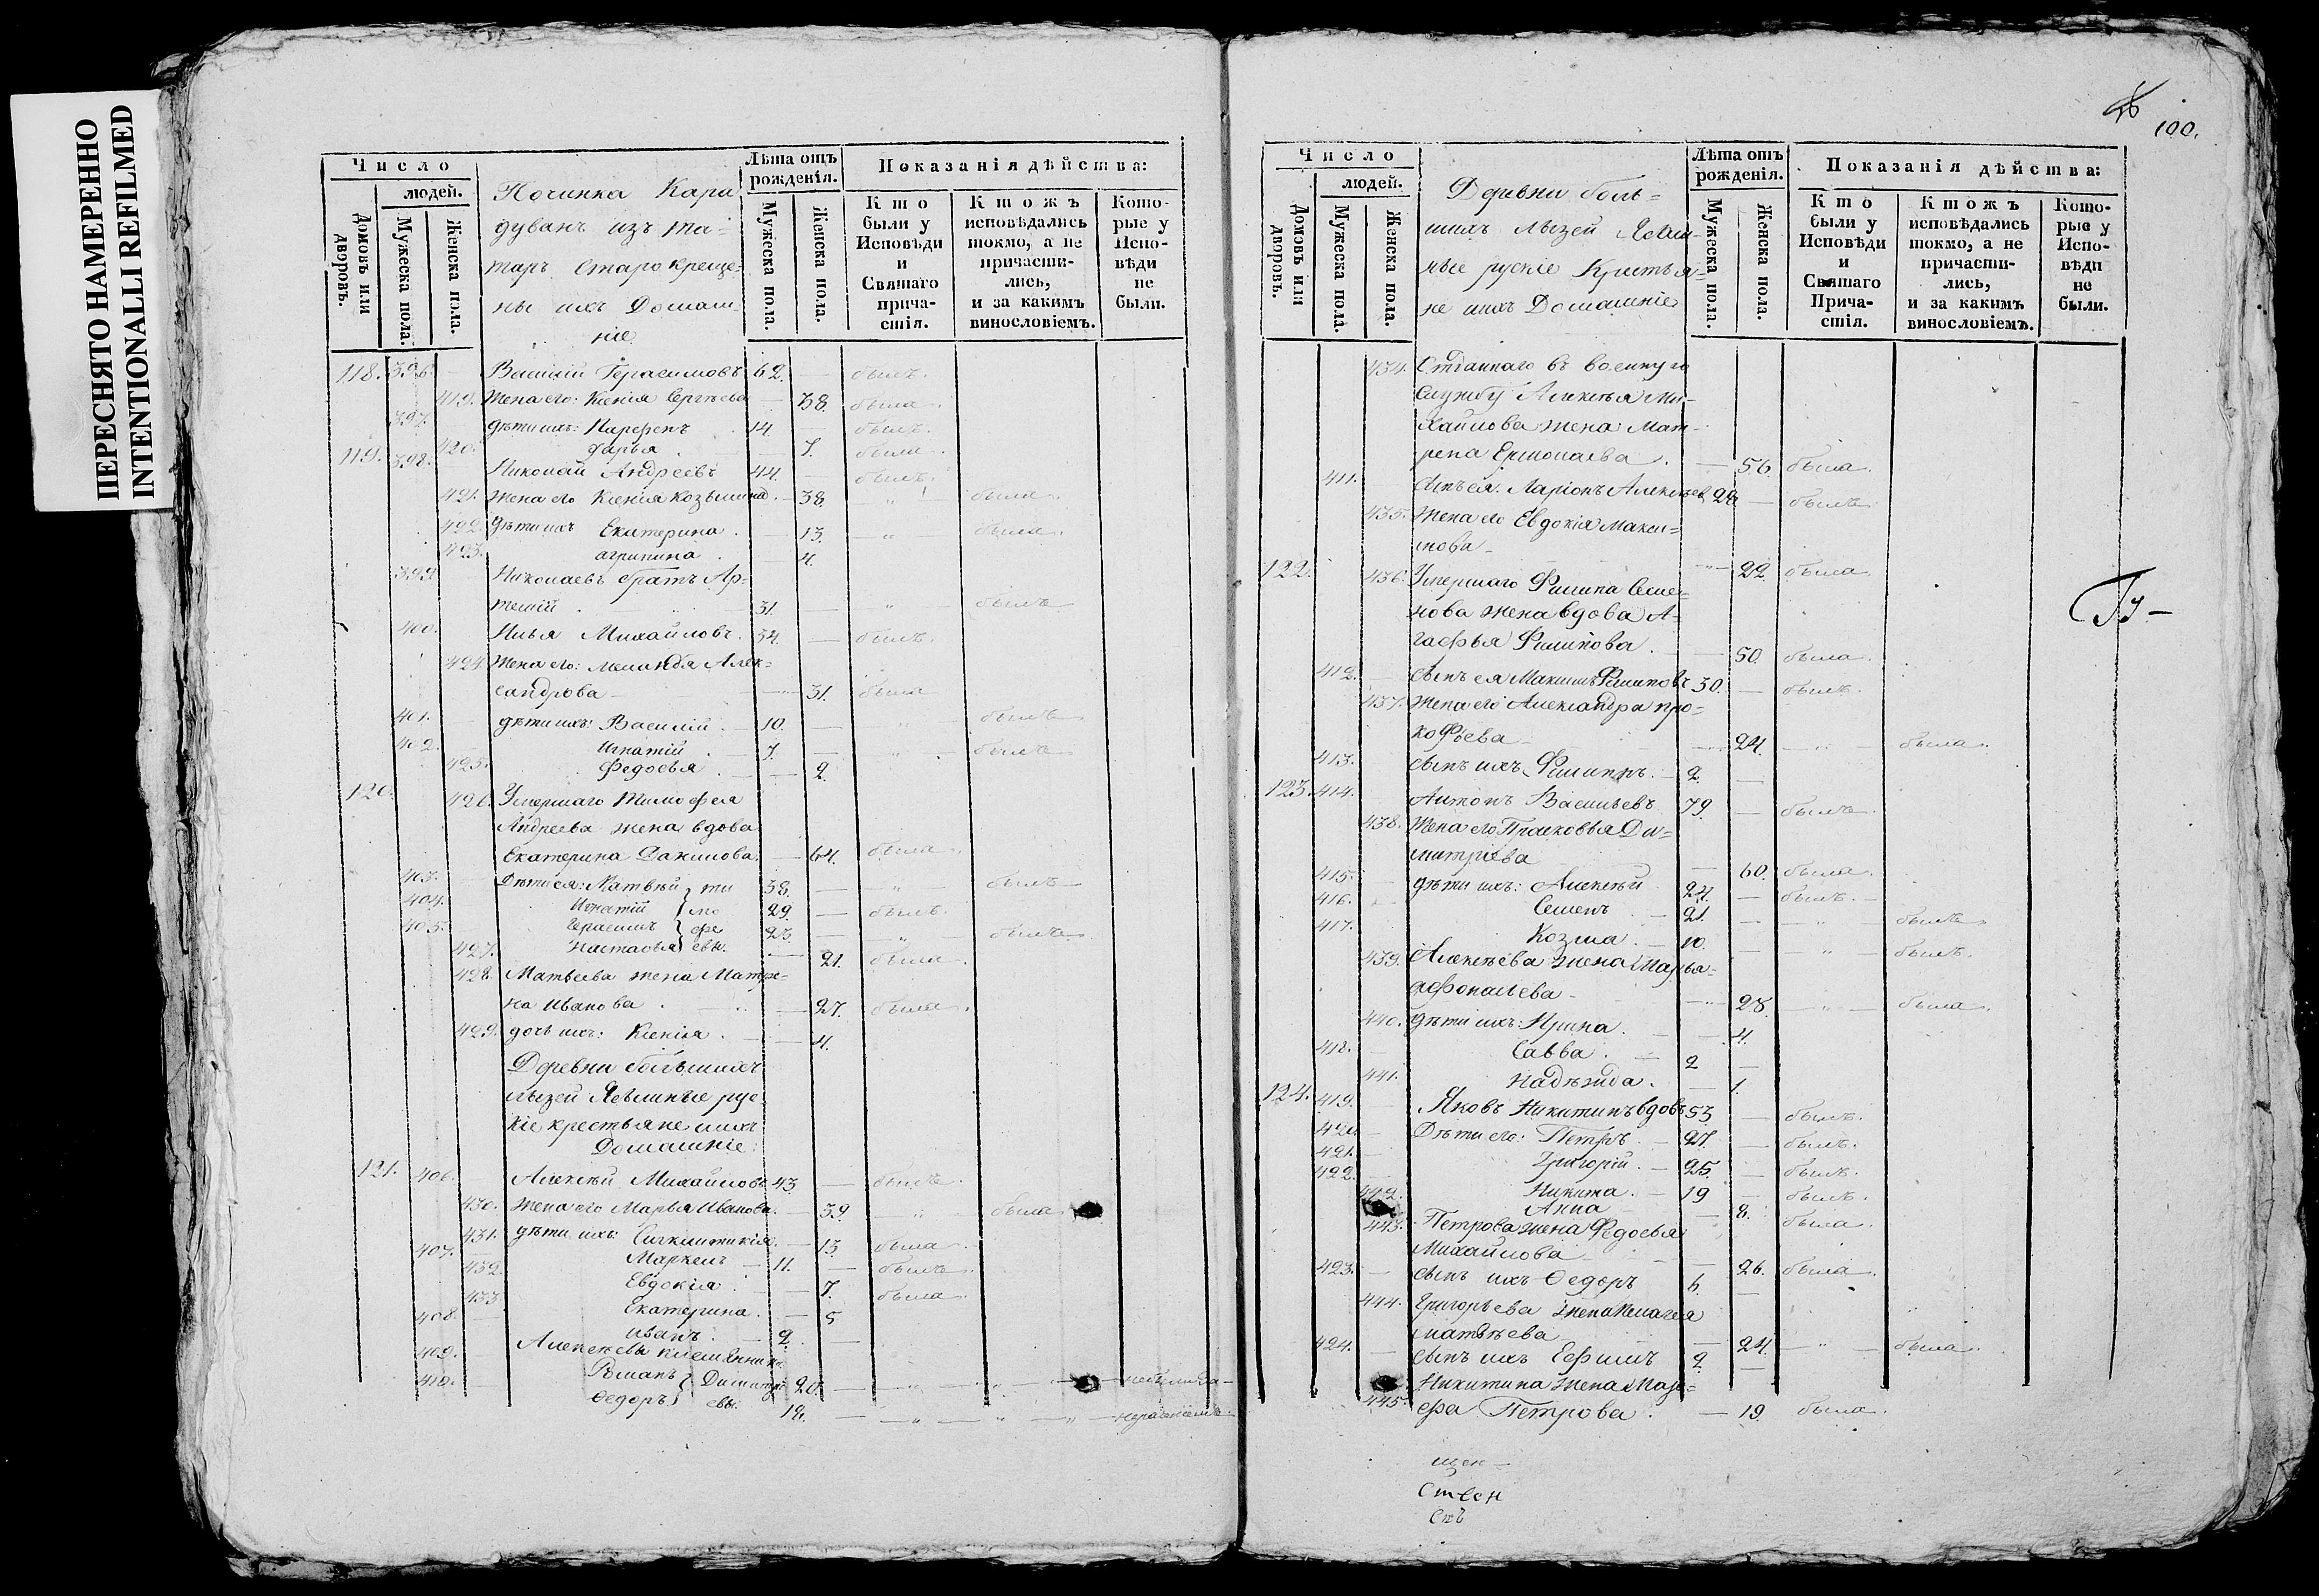 ПЕРЕСНЯТО НАМЕРЕННО
INTENTIONALLI REFILMED
Число
людей.
Домовъ или дворовъ.
Мужеска пола.
Женска пола.
Починка Кара
дуванъ изъ та=
таръ Старокреще=
ны ихъ Домаш
ніе
Лѣта отъ рожденія.
Мужеска пола.
Женска пола.
Показанія дѣйства:
Кто были у Исповѣди и Святаго причастія.
Ктожъ исповѣдались токмо, а не причастились, и за какимъ винословіемъ.
Которые у Исповѣди не были.
118. 396. Василій Герасимовъ 62. былъ.
419. Жена его: Ксенія Сергѣева 38. была.
397. дѣти ихъ: Парфенъ 14. былъ.
420. дарья 7. была.
119. 398. Николай Андреевъ 44. былъ.
421. Жена его Ксенія Козьмина. 38. была.
422. Дѣти ихъ Екатерина. 13. была.
423. агрипина. 4.
399 Николаевъ братъ Ар=
темій 31. былъ
400. Илья Михайловъ. 34. былъ.
424 Жена его: Меланья Алек=
сандрова 31. была
401. дѣти ихъ: Василій. 10. былъ
402. Игнатій 7. былъ
425. Федосья 2.
120. 426. Умершаго Тимофея
Андреева жена вдова
Екатерина Данилова. 64. была.
403. Дѣти ея: Матвѣй ти 38. былъ
404. Игнатій мо 29. былъ.
405. Герасимъ фе 23. былъ.
427. Настасья евы. 21. была
428. Матвеева жена Матре=
на Иванова. 27. была.
429. дочь ихъ: Ксенія. 4.
Деревни большихъ
лызей Ясашные рус
кіе крестьяне ихъ
Домашніе:
121. 406. Алексѣй Михайловъ 43 былъ.
430. Жена его Марья Иванова. 39. была
431. дѣти ихъ: 13 была.
407. Маркелъ 11. былъ.
432. Евдокія 7. была
433 Екатерина. 5
408. Иванъ. 2.
409. Алексѣевы племянники
Романъ Димитрі 20.
410. Ѳедоръ евы. 18.
100.
Число
людей.
Домовъ или дворовъ.
Мужеска пола.
Женска пола.
Деревни боль=
шихъ лызей Ясаш
ные рускіе Крестья=
не ихъ Домашніе
Лѣта отъ рожденія.
Мужеска пола.
Женска пола.
Показанія дѣйства:
Кто были у Исповѣди и Святаго Причастія.
Ктожъ исповѣдались токмо, а не причастились, и за какимъ винословіемъ.
Которые у Исповѣди не были.
434. Отданнаго въ военную
службу Алексѣя Ми-
хайлова жена Мат-
рена Ермолаева. 56. была.
411. сынъ ея: Ларіонъ Алексѣев 28 былъ
435. Жена его Евдокія Макси=
мова 22. была
122. 436. Умершаго Филипа Семе=
нова жена вдова А-
гафья Филипова. 50. была
412. сынъ ея Максимъ Филиповъ 30. былъ.
437. Жена его Александра про=
кофьева 24. была.
413. сынъ ихъ Филипъ. 2.
123. 414. Антонъ Васильевъ 79. былъ.
438. Жена его Прасковья Ди=
митріева 60. была.
415. дѣти ихъ: Алексѣй 24. былъ.
416. Семенъ 21. былъ
417. Козма. 10. былъ.
439. Алексѣева жена Марья
афонасьева 28. была.
440. дѣти ихъ: Ирина. 4.
418. Савва. 2
441. Надѣжда. 1.
124. 419. Яковъ Никитинъ вдовъ 53 былъ.
420. Дѣти его: Петръ. 27. былъ.
421. Григорій. 25. былъ.
422. Никита. 19 былъ.
442. Анна 8. была.
443. Петрова жена Федосья
Михайлова 26. была.
423. сынъ ихъ Ѳедоръ 6.
444. Григорьева жена Пелагея
матвѣева 24. была.
424. сынъ ихъ Ефимъ 2.
445. Никитина жена Мар=
фа Петрова. 19. была.
Гу-
щен
Ствен
Скъ